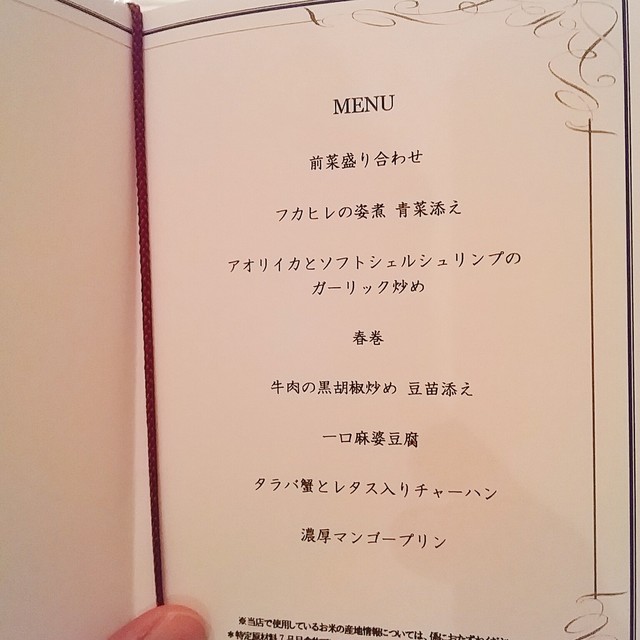 MENU
前菜盛り合わせ
フカヒレの姿煮 青菜添え
アオリイカとソフトシェルシュリンプの
ガーリック炒め
春巻
牛肉の黒胡椒炒め 豆苗添え
一口麻婆豆腐
タラバ蟹とレタス入りチャーハン
濃厚マンゴープリン
※当店で使用しているお米の産地情報については、係におたずねください
*特定原材料7品目